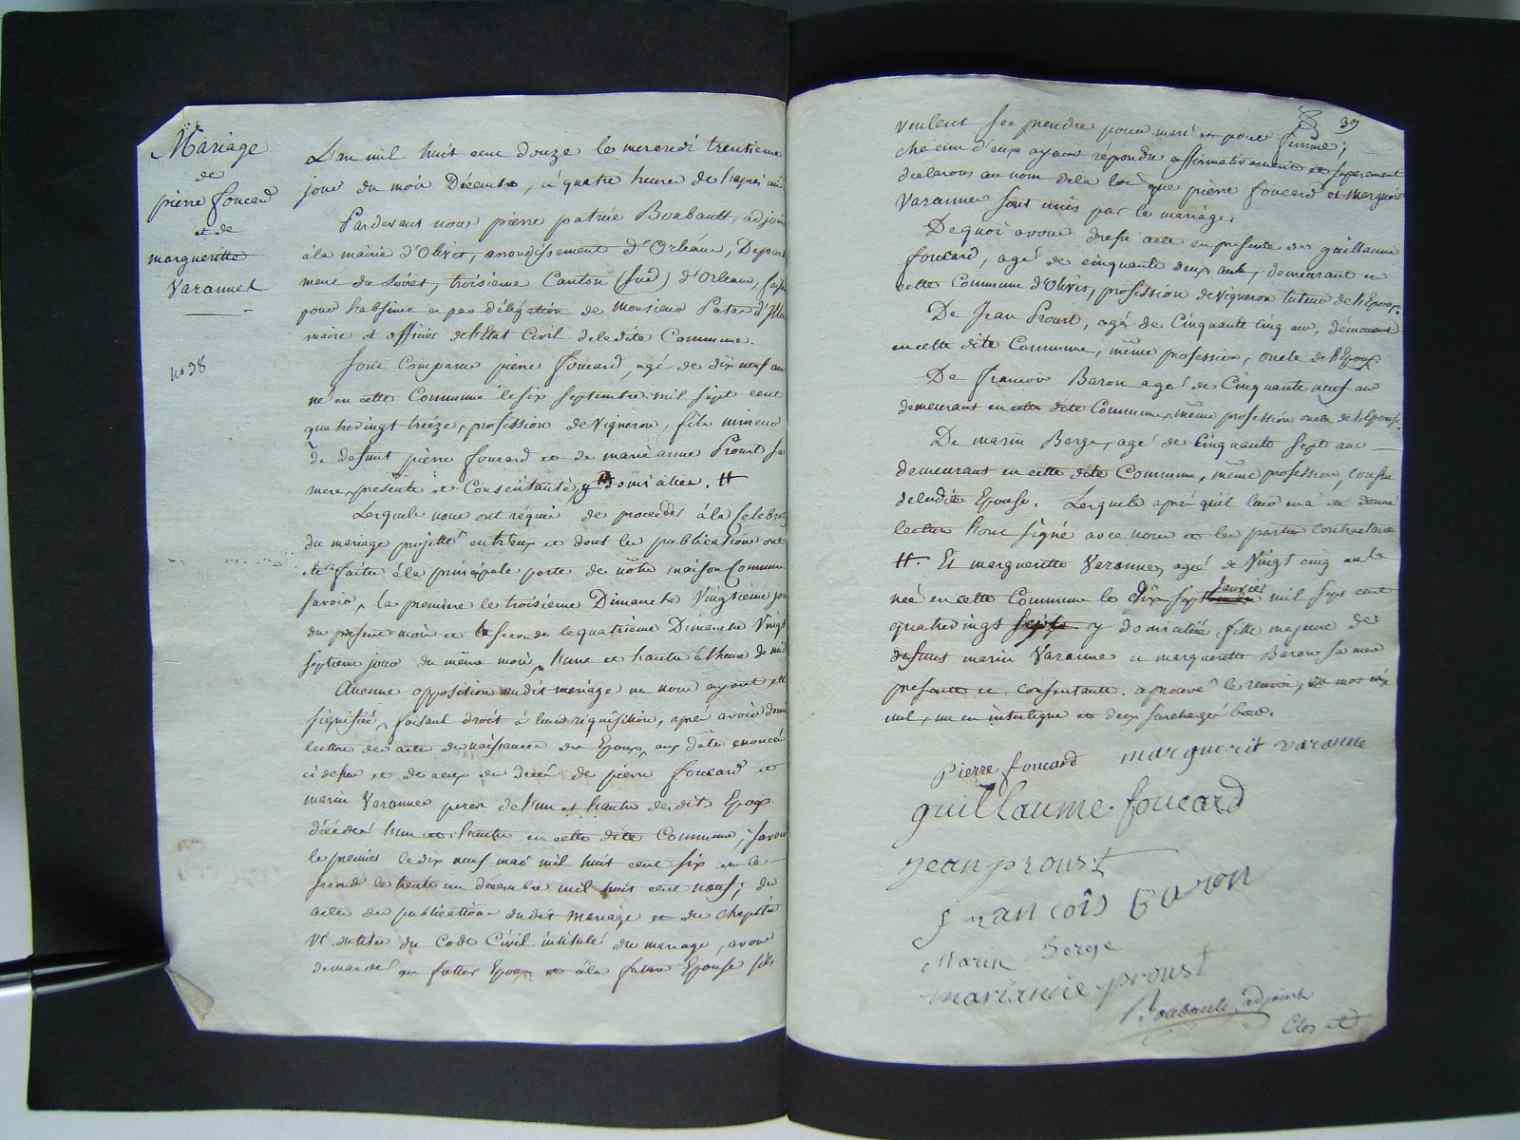 Mariage
de
pierre foucard
et de
margueritte
Varannes
n° 38
L'an mil huit cent douze le mercredi trentieme
jour du mois Décembre, à quatre heure de l'après mi
Pardevant nous pierre patrice Boubault, adjoint
à la mairie d'Olivet, arrondissement d'Orléans, Depart
ment du Loiret, troisieme Canton (sud) d'Orleans, faisant
pour l'absence et par délégation de Monsieur
maire et officier de l'état Civil de ladite Commune.
Sont Comparus pierre foucard, agé de dix neuf ans
né en cette Commune le six septembre mil sept cent
quatrevingt treize, profession de Vigneron, fils mineur
de defunt pierre foucard et de marie anne Proust sa
mere, presente et Consentante, y domiciliés. #
Lesquels nous ont réquis de proceder à la Celebration
du mariage projetté entreux et dont les publications ont
été faites à la principale porte de nôtre maison Commune
savoir, la premiere le troisieme Dimanche Vingtieme jour
du présent mois et la seconde le quatrieme Dimanche Vingt
septieme jour du même mois, l'une et l'autre à l'heure de midi
Aucune opposition audit mariage ne nous ayant été
signifiée, faisant droit à leur réquisition, après avoir donné
lecture des actes de naissance des Epoux, aux dates énoncées
ci dessus et de ceux de décès de pierre foucard et
marin Varannes peres de l'un et l'autre desdits Epoux
décédés l'un et l'autre en cette dite Commune; savoir
le premier le dix neuf mai mil huit cent six et le
second le trente un décembre mil huit cent neuf; des
actes de publications dudit mariage et du chapitre
VI du titre du Code Civil intitulé du mariage, avons
demandé au futur Epoux et à la future Epouse s'ils
39
veulent se prendre pour mari et pour femme;
chacun d'eux ayant répondu affirmativement et separement
declarons au nom de la loi que pierre foucard et margueritte
Varannes sont unis par le mariage.
De quoi avons dressé acte en presence de guillaume
foucard, agé de cinquante deux ans, demeurant en
cette Commune d'Olivet, profession de Vigneron tuteur de l'Epoux.
De Jean Proust, agé de Cinquante cinq ans, démeurant
en cette dite Commune, même profession, oncle de l'Epoux
De francois Baron agé de Cinquante neuf ans
demeurant en cette dite Commune, même profession oncle de l'Epouse.
De marin Berge, agé de Cinquante Sept ans
demeurant en cette dite Commune, même profession, cousin
de ladite Epouse. Lesquels après qu'il leur en a été donné
lecture l'ont signé avec nous et les parties contractantes
#. Et margueritte Varannes, agée de Vingt cinq ans
née en cette Commune le dix sept janvier mil sept cent
quatrevingt sept y domiciliée, fille majeure de
defunt marin Varannes et margueritte Baron sa mere
presente et consentante. aprouvé le renvoi, mot rayé
nul, un en interligne et deux surchargés bon.
pierre foucard marguerit varanne
guillaume foucard
jean proust
francois baron
Marin Berge
marianne proust
Boubault, adjoint
Clos et